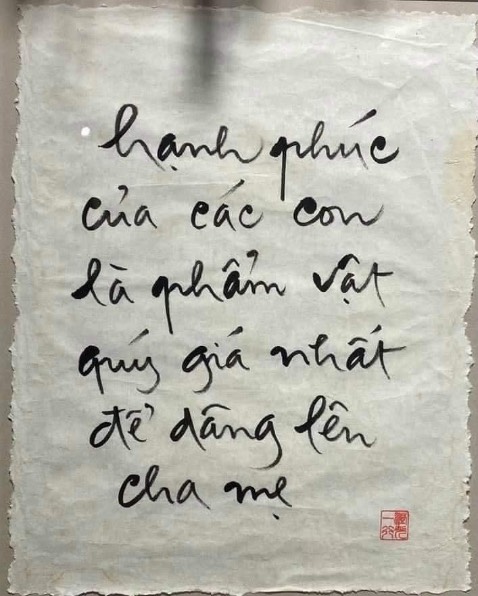 hạnh phúc
của các con
là phẩm vật
quý giá nhất
để dâng lên
cha mẹ